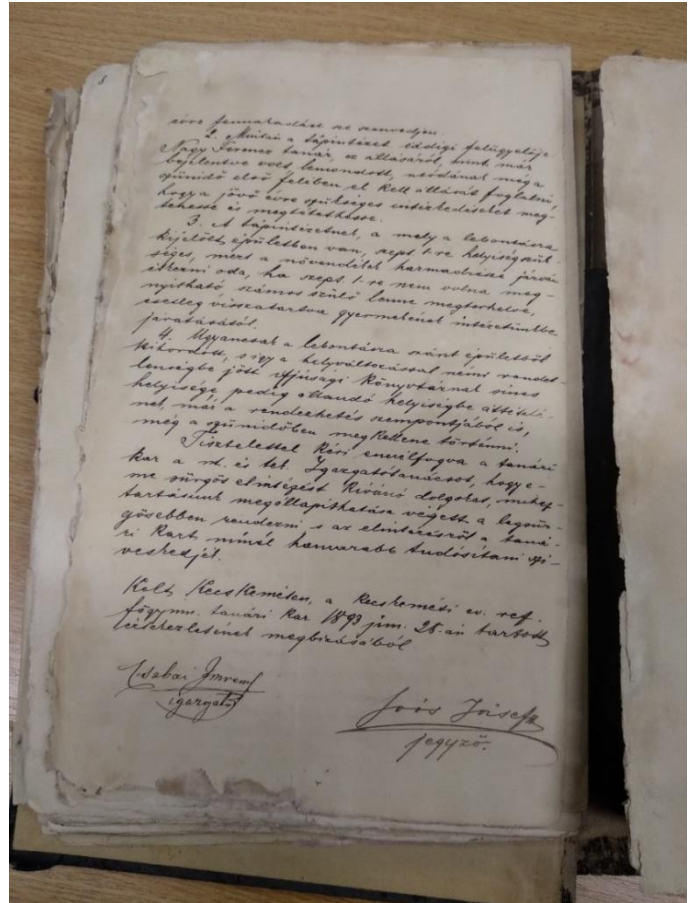 évre fennakadást ne szenvedjen.
2. Miután a tápintézet eddigi felügyelője
Nagy Ferencz tanár, ez állásáról, mint már
bejelentve volt, lemondott, utódának még a
szünidő első felében el kell állását foglalni,
hogy a jövő évre szükséges intézkedéseket meg-
tehesse és megtétethesse.
3. A tápintézetnek, a mely a lebontásra
kijelölt épületben van, szept. 1-re helyiség szük-
séges, mert a növendékek harmadrésze járván
étkezni oda, ha szept. 1-re nem volna meg-
nyitható számos szülő lenne megterhelve,
esetleg visszatartva gyermekének intézetünkbe
járatásától.
4. Ugyancsak a lebontásra szánt épületből
kihordott, s így a helyváltozással némi rendet-
lenségbe jött ifjúsági könyvtárnak sincs
helyisége, pedig állandó helyiségbe áttételé-
nek, már a rendezhetés szempontjából is,
még a szünidőben meg kellene történni.
Tisztelettel kéri ennélfogva a tanári
kar a nt. és tek. Igazgatótanácsot, hogy e-
me sürgős elintézést kívánó dolgokat, mihez-
tartásunk megállapíthatása végett a legsür-
gősebben rendezni s az elintézésről a taná-
ri kart minél hamarabb tudósítani szí-
veskedjék.
Kelt Kecskeméten, a kecskeméti ev. ref.
főgymn. tanári kar 1893 jun. 28-án tartott
értekezletének megbízásából
Csabai Imre
igazgató
Soós József
jegyző.